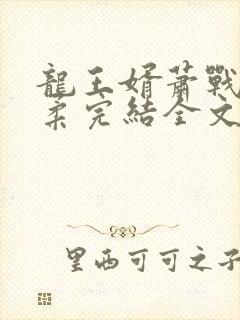 龍王婿蕭戰
柔完結全文
里西可可之子